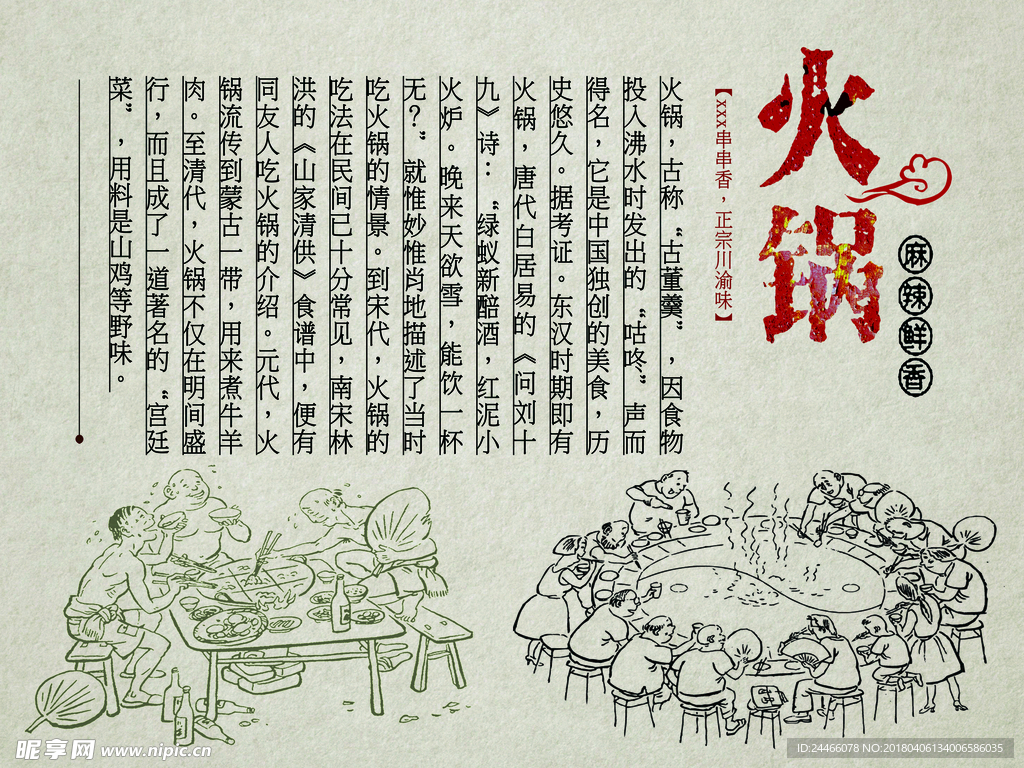 火锅
麻辣鲜香
【xxx串串香，正宗川渝味】
火锅，古称“古董羹”，因食物
投入沸水时发出的“咕咚”声而
得名，它是中国独创的美食，历
史悠久。据考证。东汉时期即有
火锅，唐代白居易的《问刘十
九》诗：“绿蚁新醅酒，红泥小
火炉。晚来天欲雪，能饮一杯
无？”就惟妙惟肖地描述了当时
吃火锅的情景。到宋代，火锅的
吃法在民间已十分常见，南宋林
洪的《山家清供》食谱中，便有
同友人吃火锅的介绍。元代，火
锅流传到蒙古一带，用来煮牛羊
肉。至清代，火锅不仅在明间盛
行，而且成了一道著名的“宫廷
菜”，用料是山鸡等野味。
昵享网 www.nipic.cn
ID:24466078 NO:20180406134006586035